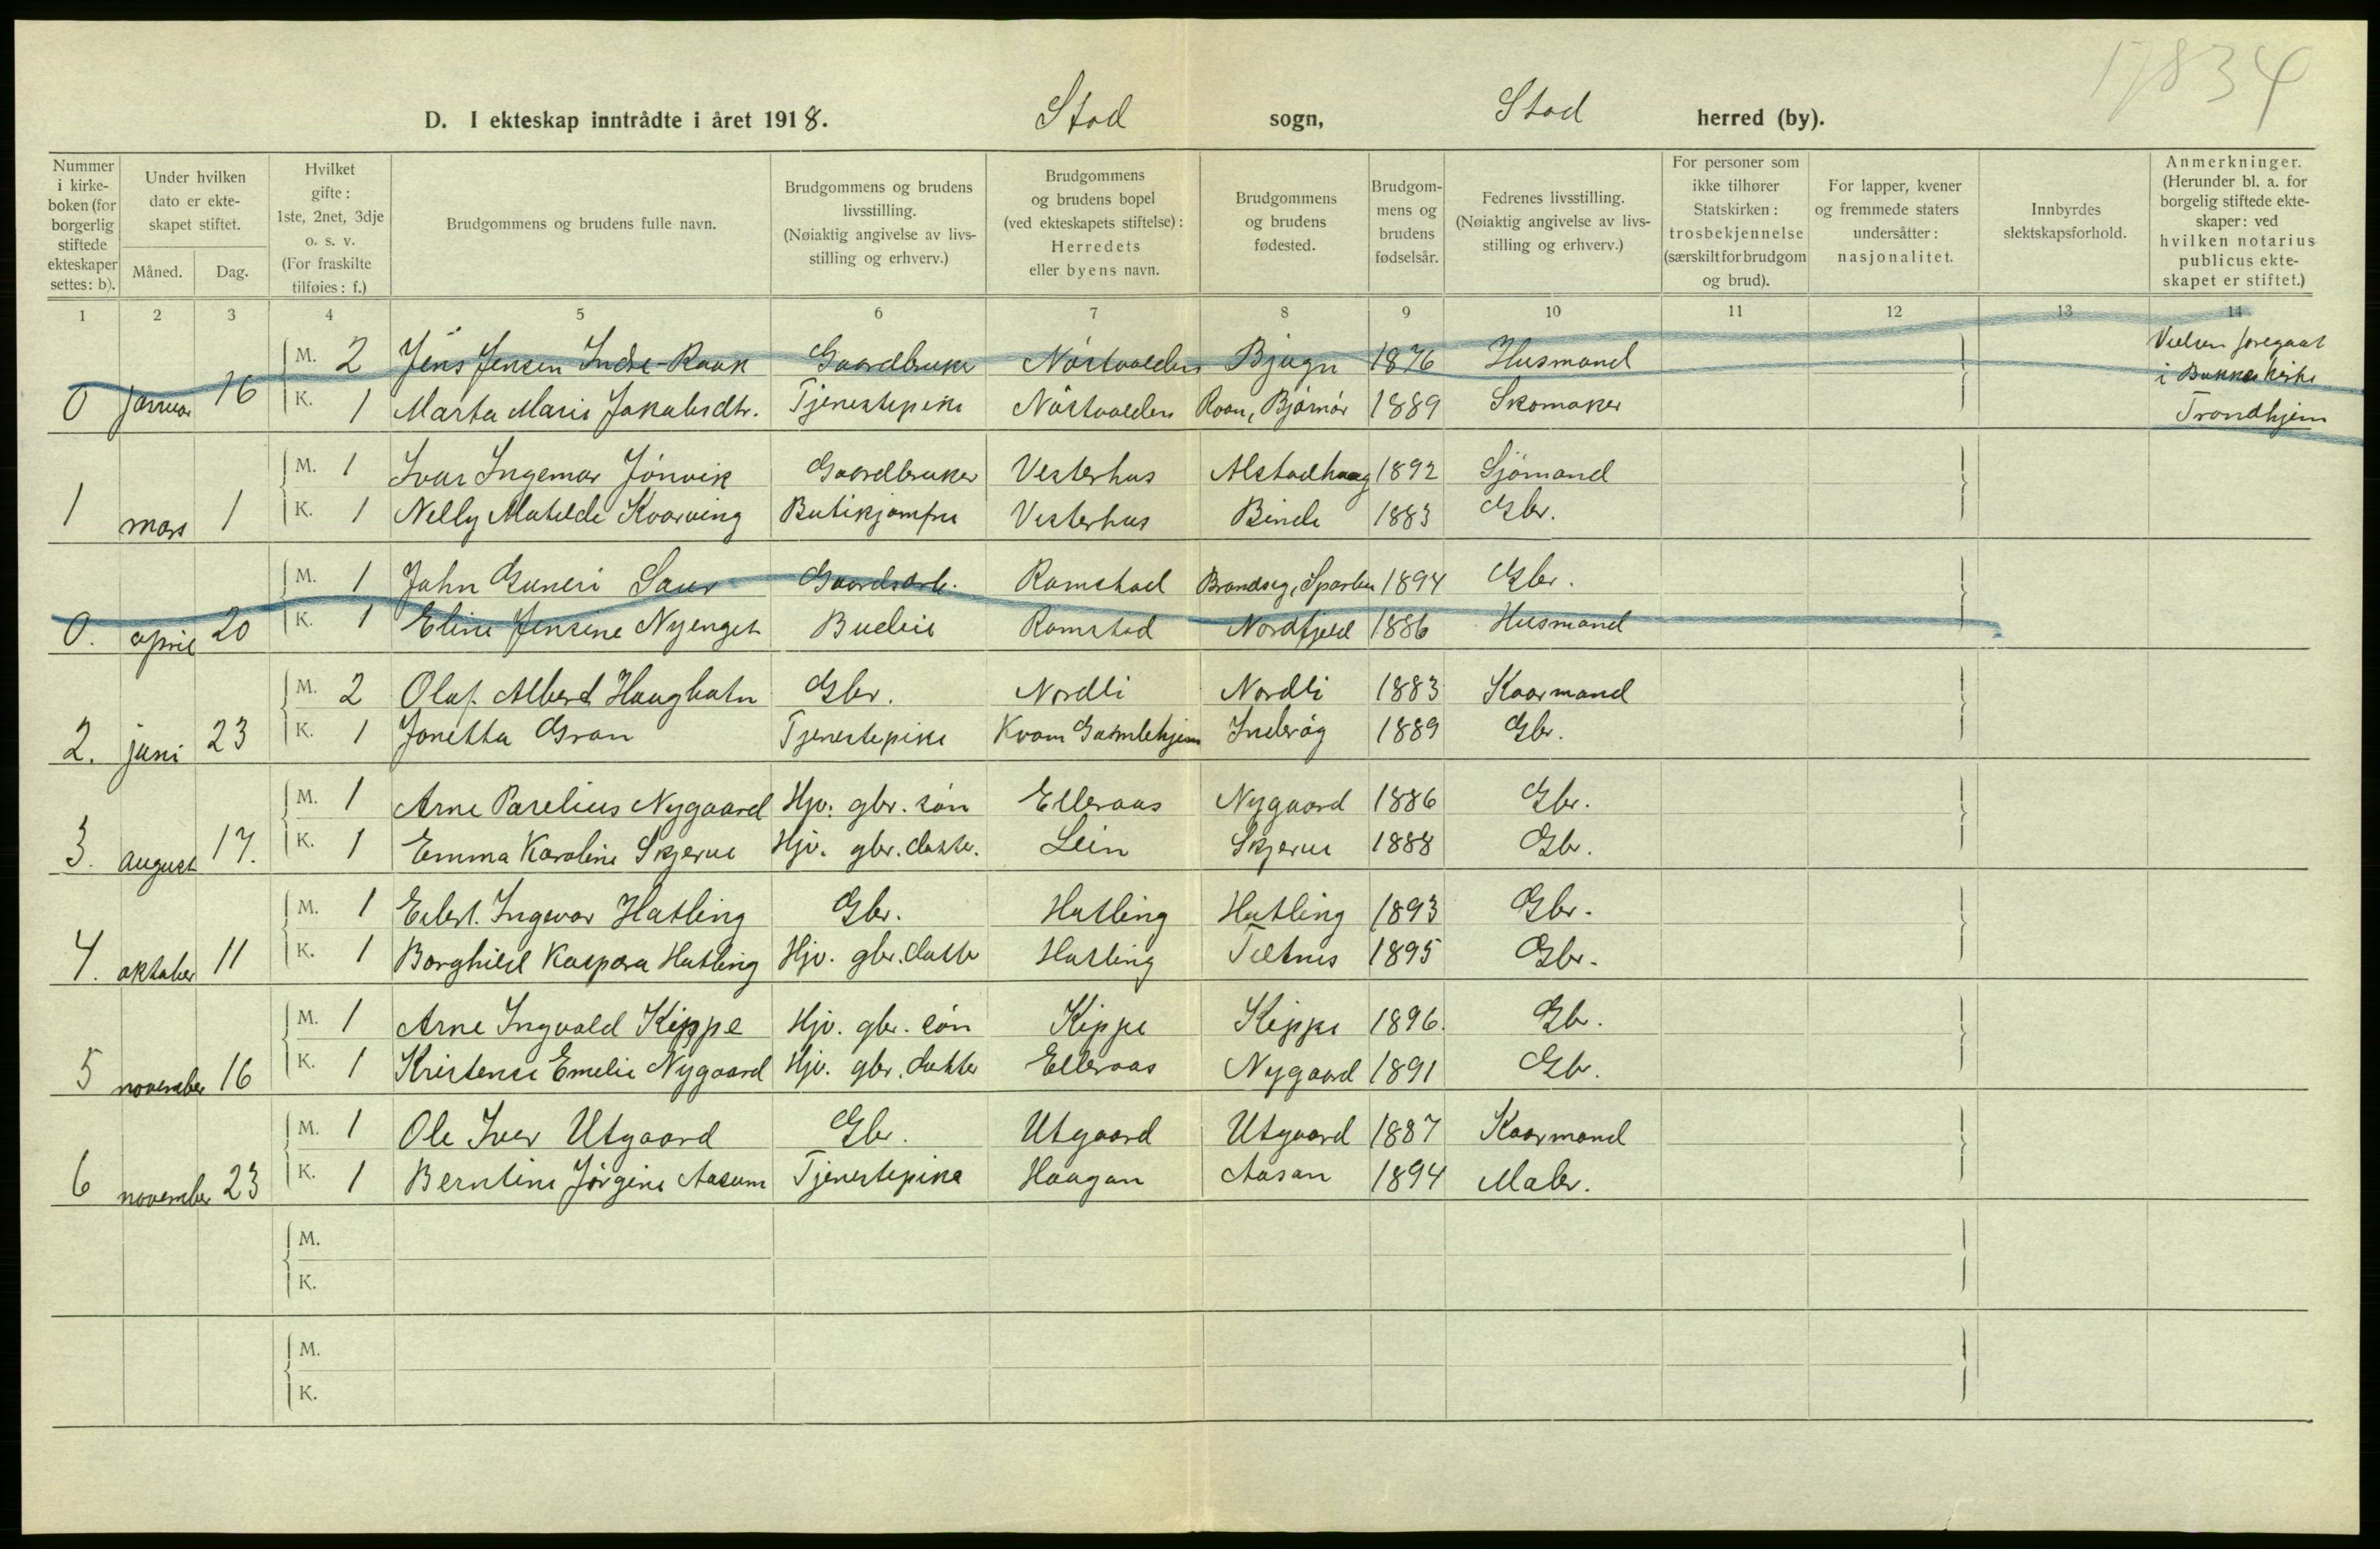 17834
D. I ekteskap inntrådte i året 1918. Stod sogn, Stod herred (by).
Nummer i kirkeboken (for borgerlig stiftede ekteskaper settes: b).
Under hvilken dato er ekteskapet stiftet.
Måned.
Dag.
Hvilket gifte: 1ste, 2net, 3dje o. s. v. (For fraskilte tilføies: f.)
Brudgommens og brudens fulle navn.
Brudgommens og brudens livsstilling. (Nøiaktig angivelse av livsstilling og erhverv.)
Brudgommens og brudens bopel (ved ekteskapets stiftelse): Herredets eller byens navn.
Brudgommens og brudens fødested.
Brudgommens og brudens fødselsår.
Fedrenes livsstilling. (Nøiaktig angivelse av livsstilling og erhverv.)
For personer som ikke tilhører Statskirken: trosbekjennelse (særskilt for brudgom og brud).
For lapper, kvener og fremmede staters undersåtter: nasjonalitet.
Innbyrdes slektskapsforhold.
Anmerkninger. (Herunder bl. a. for borgelig stiftede ekteskaper: ved hvilken notarius publicus ekteskapet er stiftet.)
1 2 3 4 5 6 7 8 9 10 11 12 13 14
M. 2 Jens Jensen Indre-Raak Gaardbruker Nöstvolden Bjugn 1876 Husmand Vielsen foregaat i Bakke kirke Trondhjem
0 januar 16 K. 1 Marta Marie Jakobsdtr. Tjenestepike Nöstvolden Roan, Björnör 1889 Skomaker
M. 1 Ivar Ingemar Jönvik Gaardbruker Vesterhus Alstadhaug 1892 Sjömand
1 mars 1 K. 1 Nelly Matilde Kvarving Butikjomfru Vesterhus Beinde 1883 Gbr.
M. 1 John Guneri Saur Gaardsarb. Ramstad Brandseg, Sparbu 1894 Gbr.
0. april 20 K. 1 Eline Jensine Nyenget Budeie Ramstad Nordfjeld 1886 Husmand
M. 2 Olaf Albert Haugbatn Gbr. Nordli Nordli 1883 Kaarmand
2. juni 23 K. 1 Jonetta Gran Tjenestepike Kvam Gamlehjem Inderög 1889 Gbr.
M. 1 Arne Parelius Nygaard Hjv. gbr. sön Elleraas Nygaard 1886 Gbr.
3. august 17. K. 1 Emma Karoline Skjerve Hjv. gbr. datter. Lein Skjerve 1888 Gbr.
M. 1 Edert. Ingvar Hatling Gbr. Hatling Hatling 1893 Gbr.
4. oktober 11 K. 1 Borghild Kaspara Hatling Hjv. gbr. datter Hatling Tiltnes 1895 Gbr.
M. 1 Arne Ingvald Kippe Hjv. gbr. sön Kippe Kippe 1896. Gbr.
5 november 16 K. 1 Kristense Emelie Nygaard Hjv. gbr. datter Elleraas Nygaard 1891 Gbr.
M. 1 Ole Iver Utgaard Gbr. Utgaard Utgaard 1887 Kaarmand
6 november 23 K. 1 Berntine Jörgine Aasum Tjenestepike Haagan Aasan 1894 Maler.
M.
K.
M.
K.